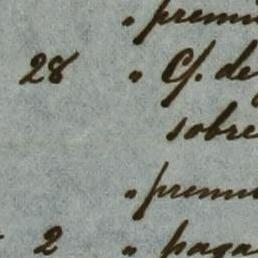 " premi
28 " C/. de
sobre
" premi
2 " paga